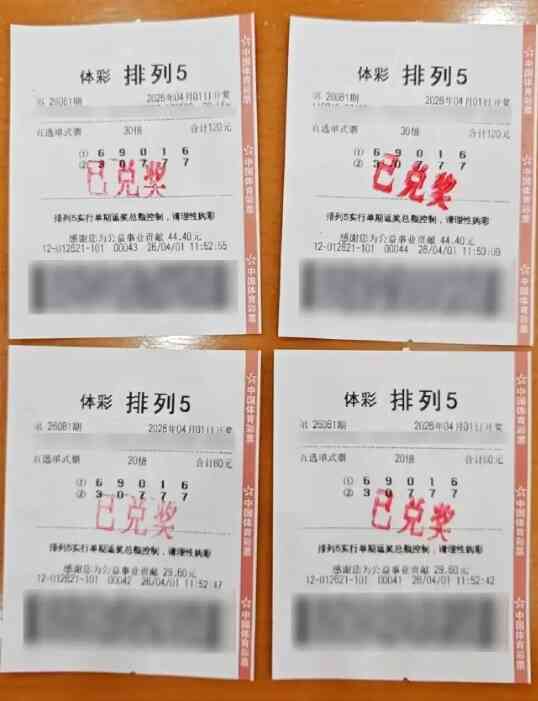 体彩 排列5
第 26081期 2026年04月01日开奖
直选单式票 30倍 合计120元
① 6 9 0 1 6
② 3 0 7 7 7
已兑奖
排列5实行单期返奖总额控制，请理性购彩
感谢您为公益事业贡献 44.40元
12-012621-101 00043 26/04/01 11:52:55
中国体育彩票
中国体育彩票
中国体育彩票
体彩 排列5
第 26081期 2026年04月01日开奖
直选单式票 30倍 合计120元
① 6 9 0 1 6
② 3 0 7 7 7
已兑奖
排列5实行单期返奖总额控制，请理性购彩
感谢您为公益事业贡献 44.40元
12-012621-101 00044 26/04/01
中国体育彩票
中国体育彩票
中国体育彩票
体彩 排列5
第 26081期 2026年04月01日开奖
直选单式票 20倍 合计80元
① 6 9 0 1 6
② 3 0 7 7 7
已兑奖
排列5实行单期返奖总额控制，请理性购彩
感谢您为公益事业贡献 29.60元
12-012621-101 00042 26/04/01 11:52:47
中国体育彩票
中国体育彩票
中国体育彩票
体彩 排列5
第 26081期 2026年04月01日开奖
直选单式票 20倍 合计80元
① 6 9 0 1 6
② 3 0 7 7 7
已兑奖
排列5实行单期返奖总额控制，请理性购彩
感谢您为公益事业贡献 29.60元
12-012621-101 00041 26/04/01 11:52:42
中国体育彩票
中国体育彩票
中国体育彩票